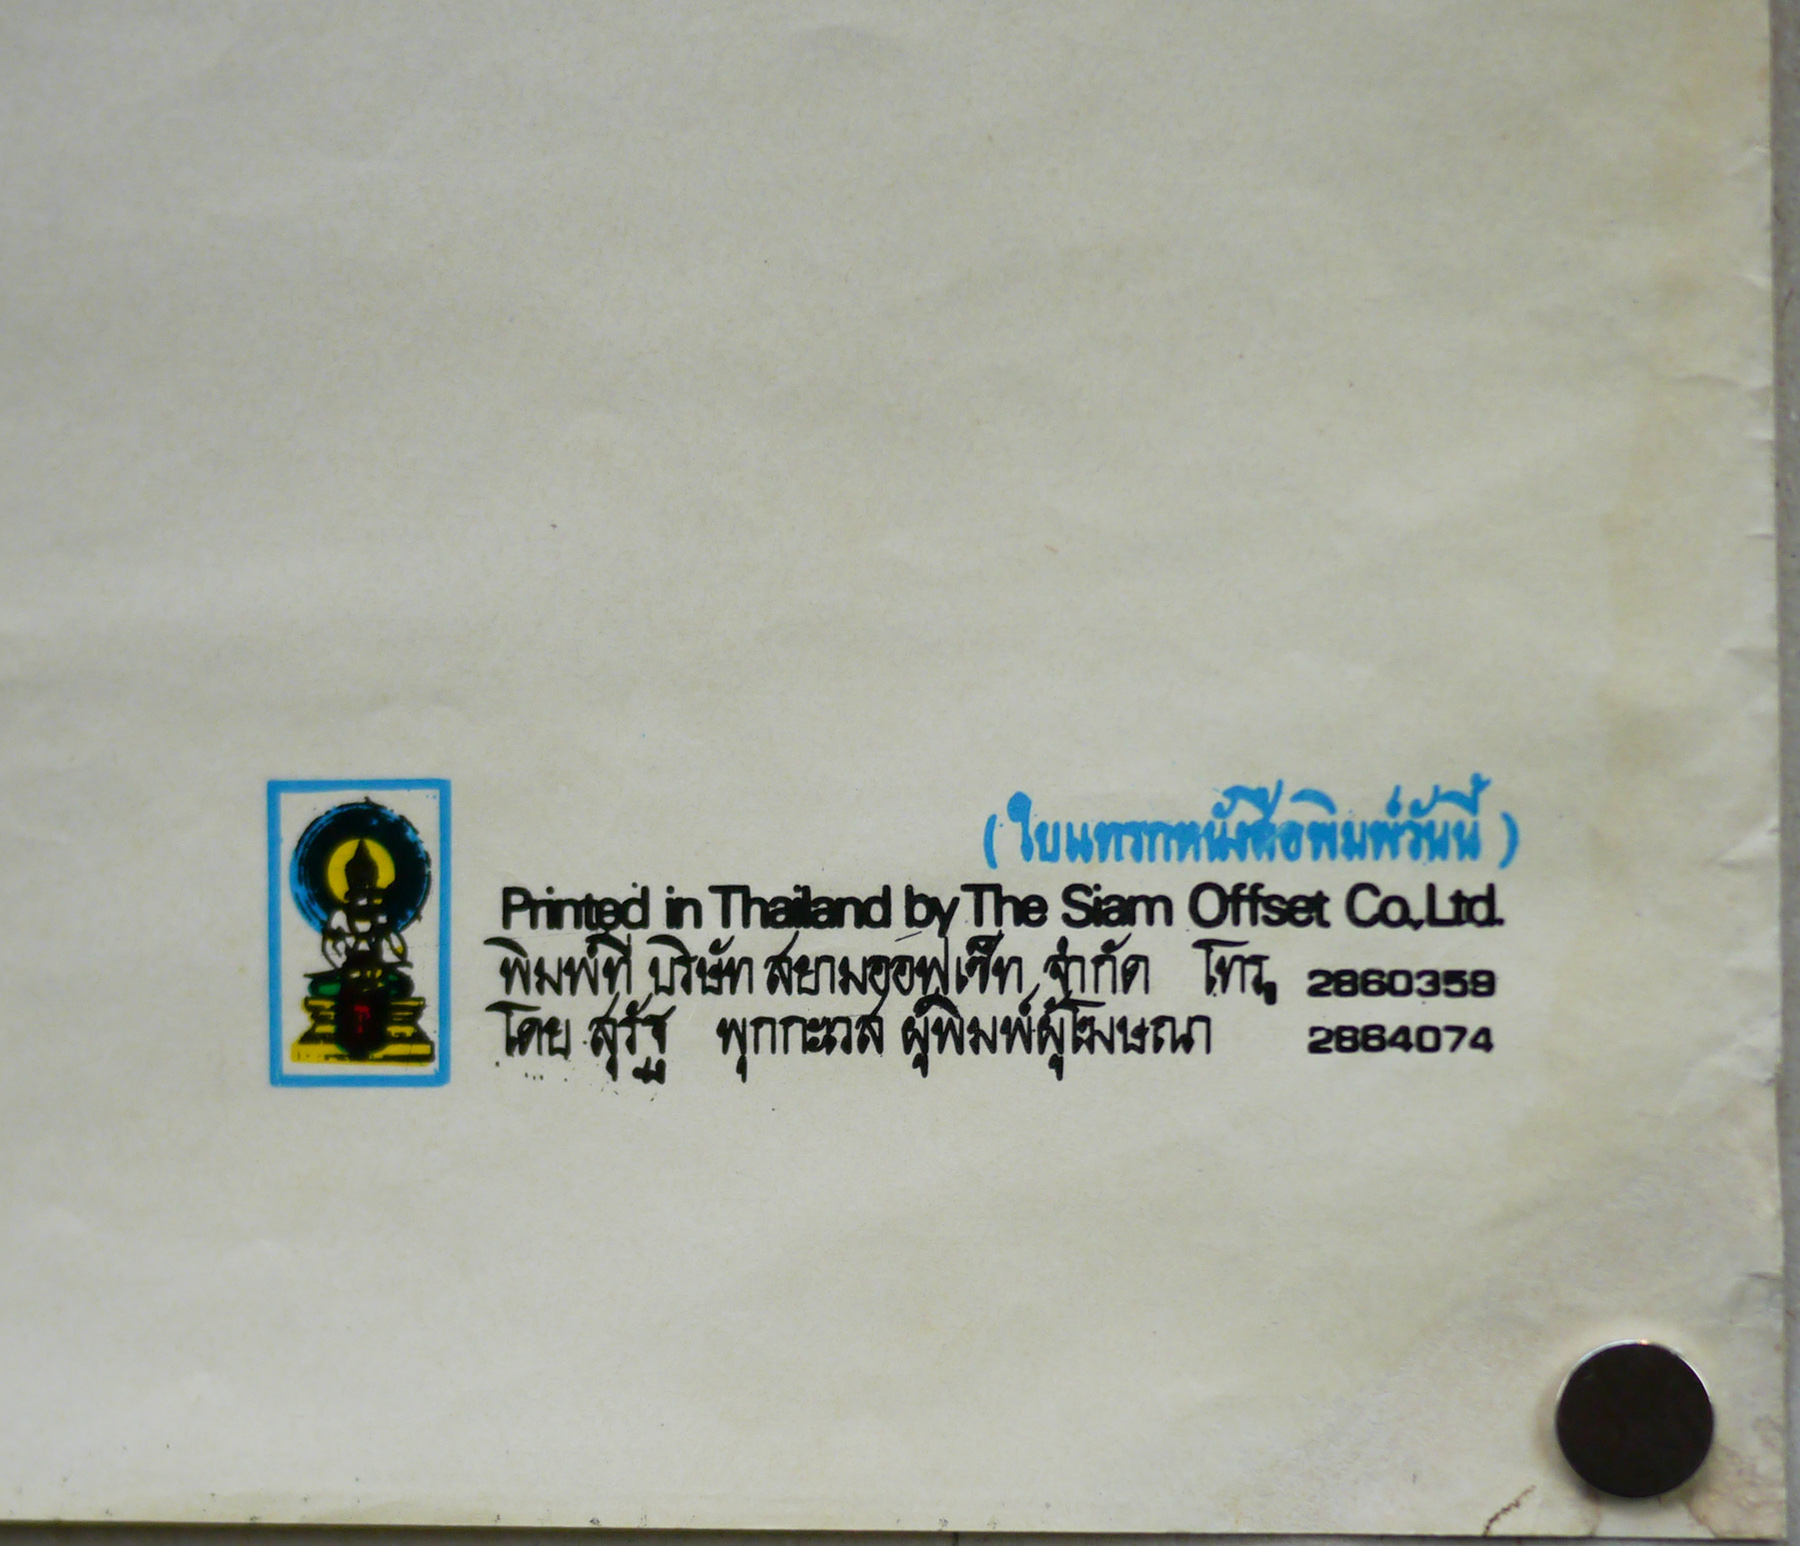 (ใบแทรกหนังสือพิมพ์วันนี้)
Printed in Thailand by The Siam Offset Co.,Ltd.
พิมพ์ที่ บริษัท สยามออฟเซ็ท จำกัด โทร, 2860359
โดย สุรัฐ พุกกะเวส ผู้พิมพ์ผู้โฆษณา 2864074